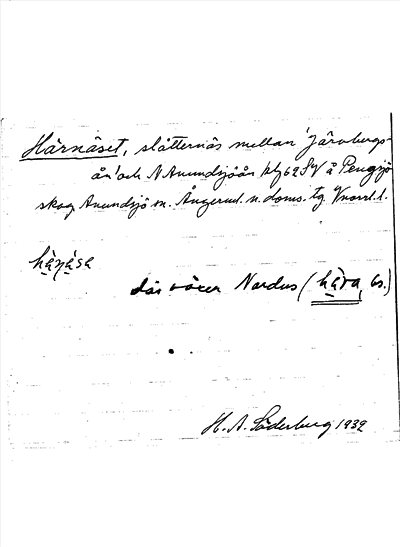 Härnäset, slåtternäs mellan Järvbergs-
ån och N Anundsjöån blg 62 SV å Pengsjö
skog Anundsjö sn. Ångerml. n. doms. tg. Vnorrl. l.
hàṇása
där växer Nardus (hàra, bs.)
H. A. Söderberg 1932